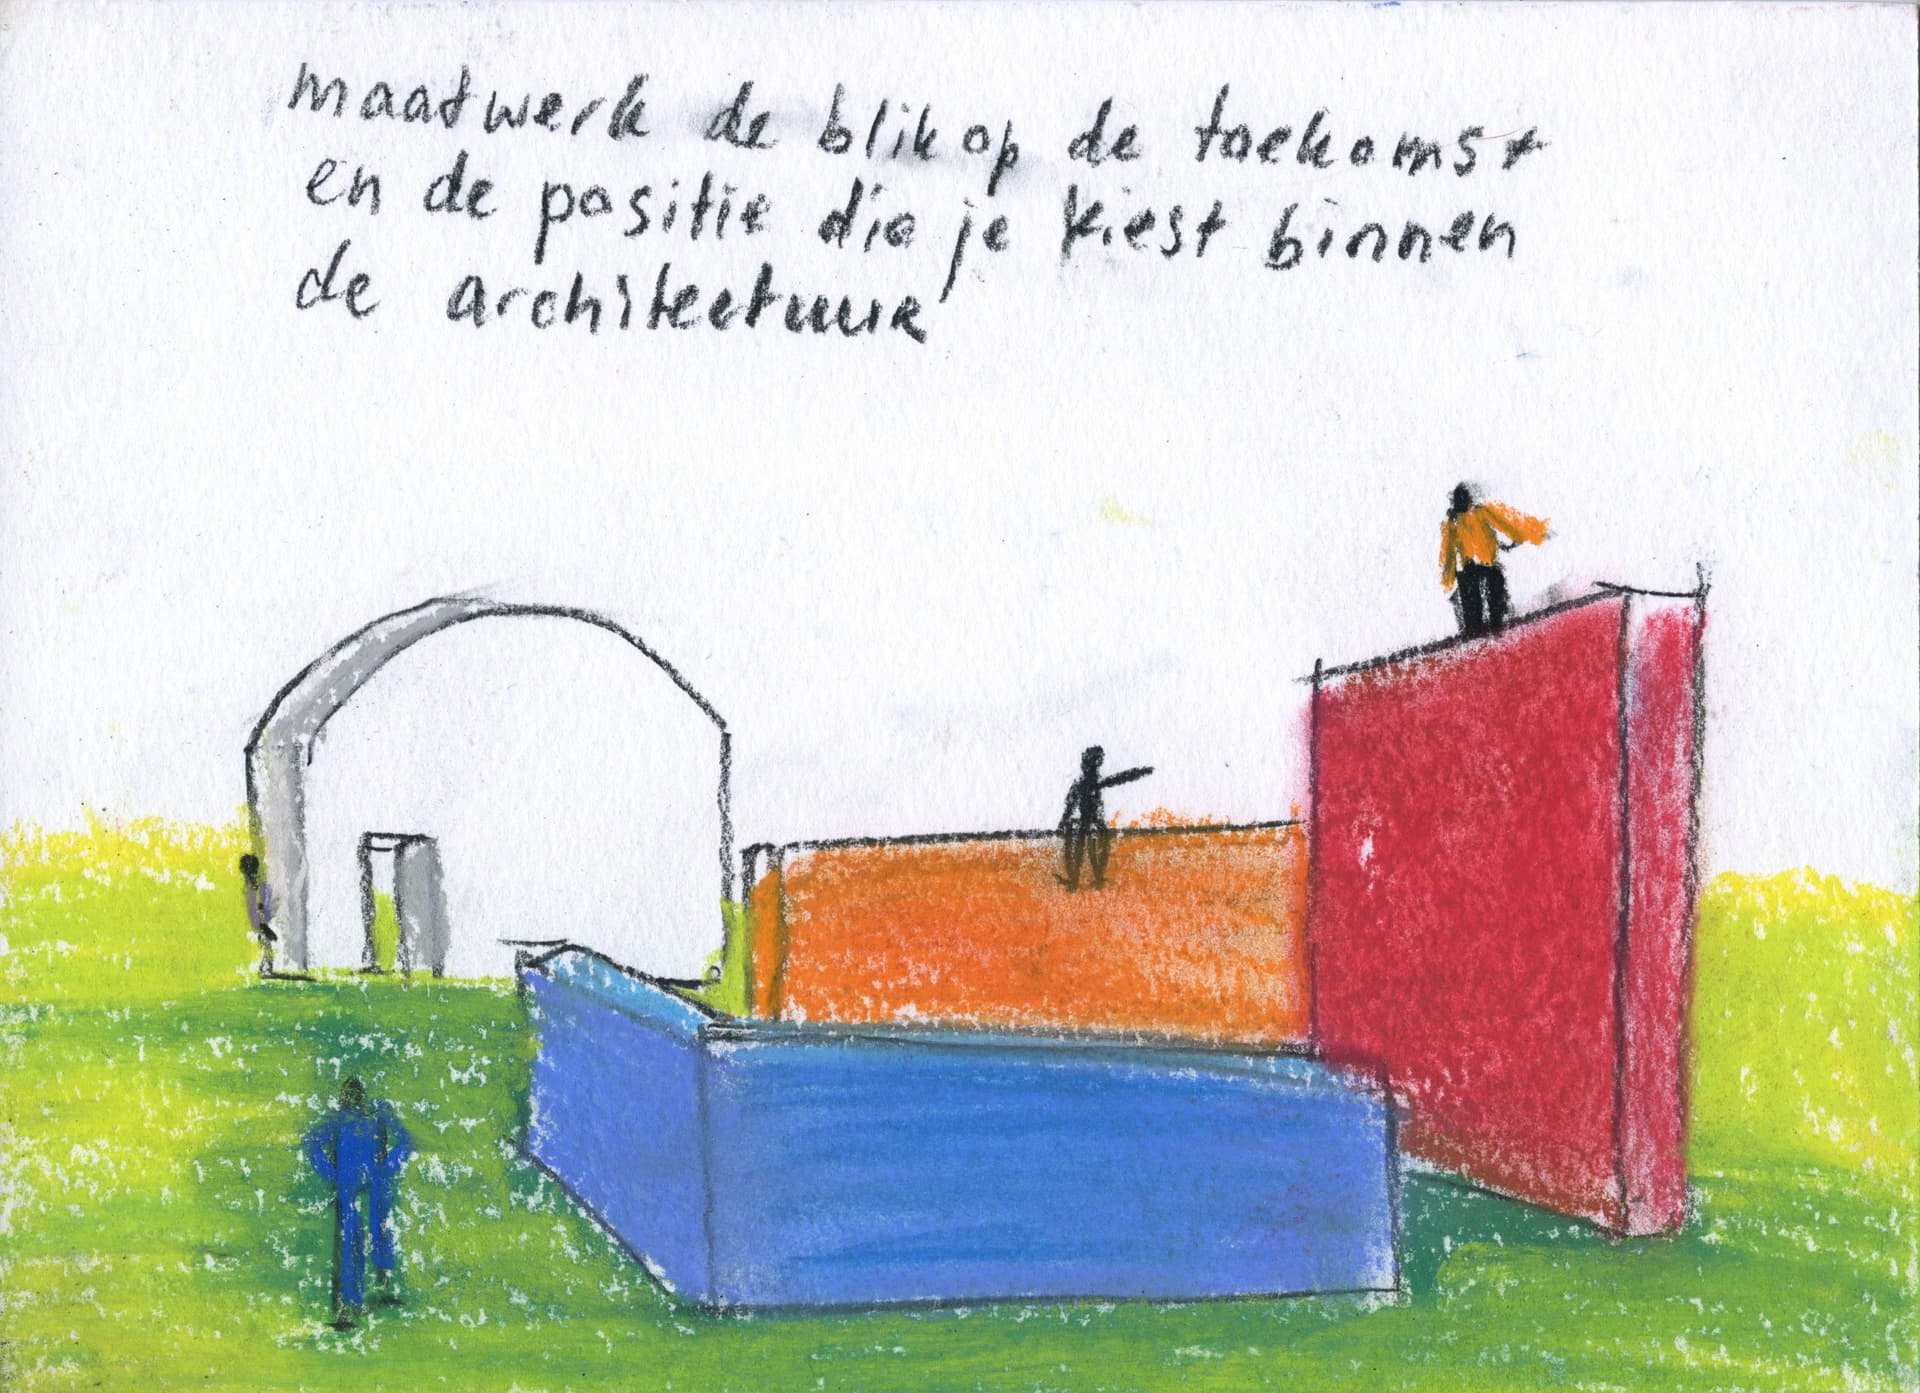 maatwerk de blik op de toekomst
en de positie die je kiest binnen
de architectuur